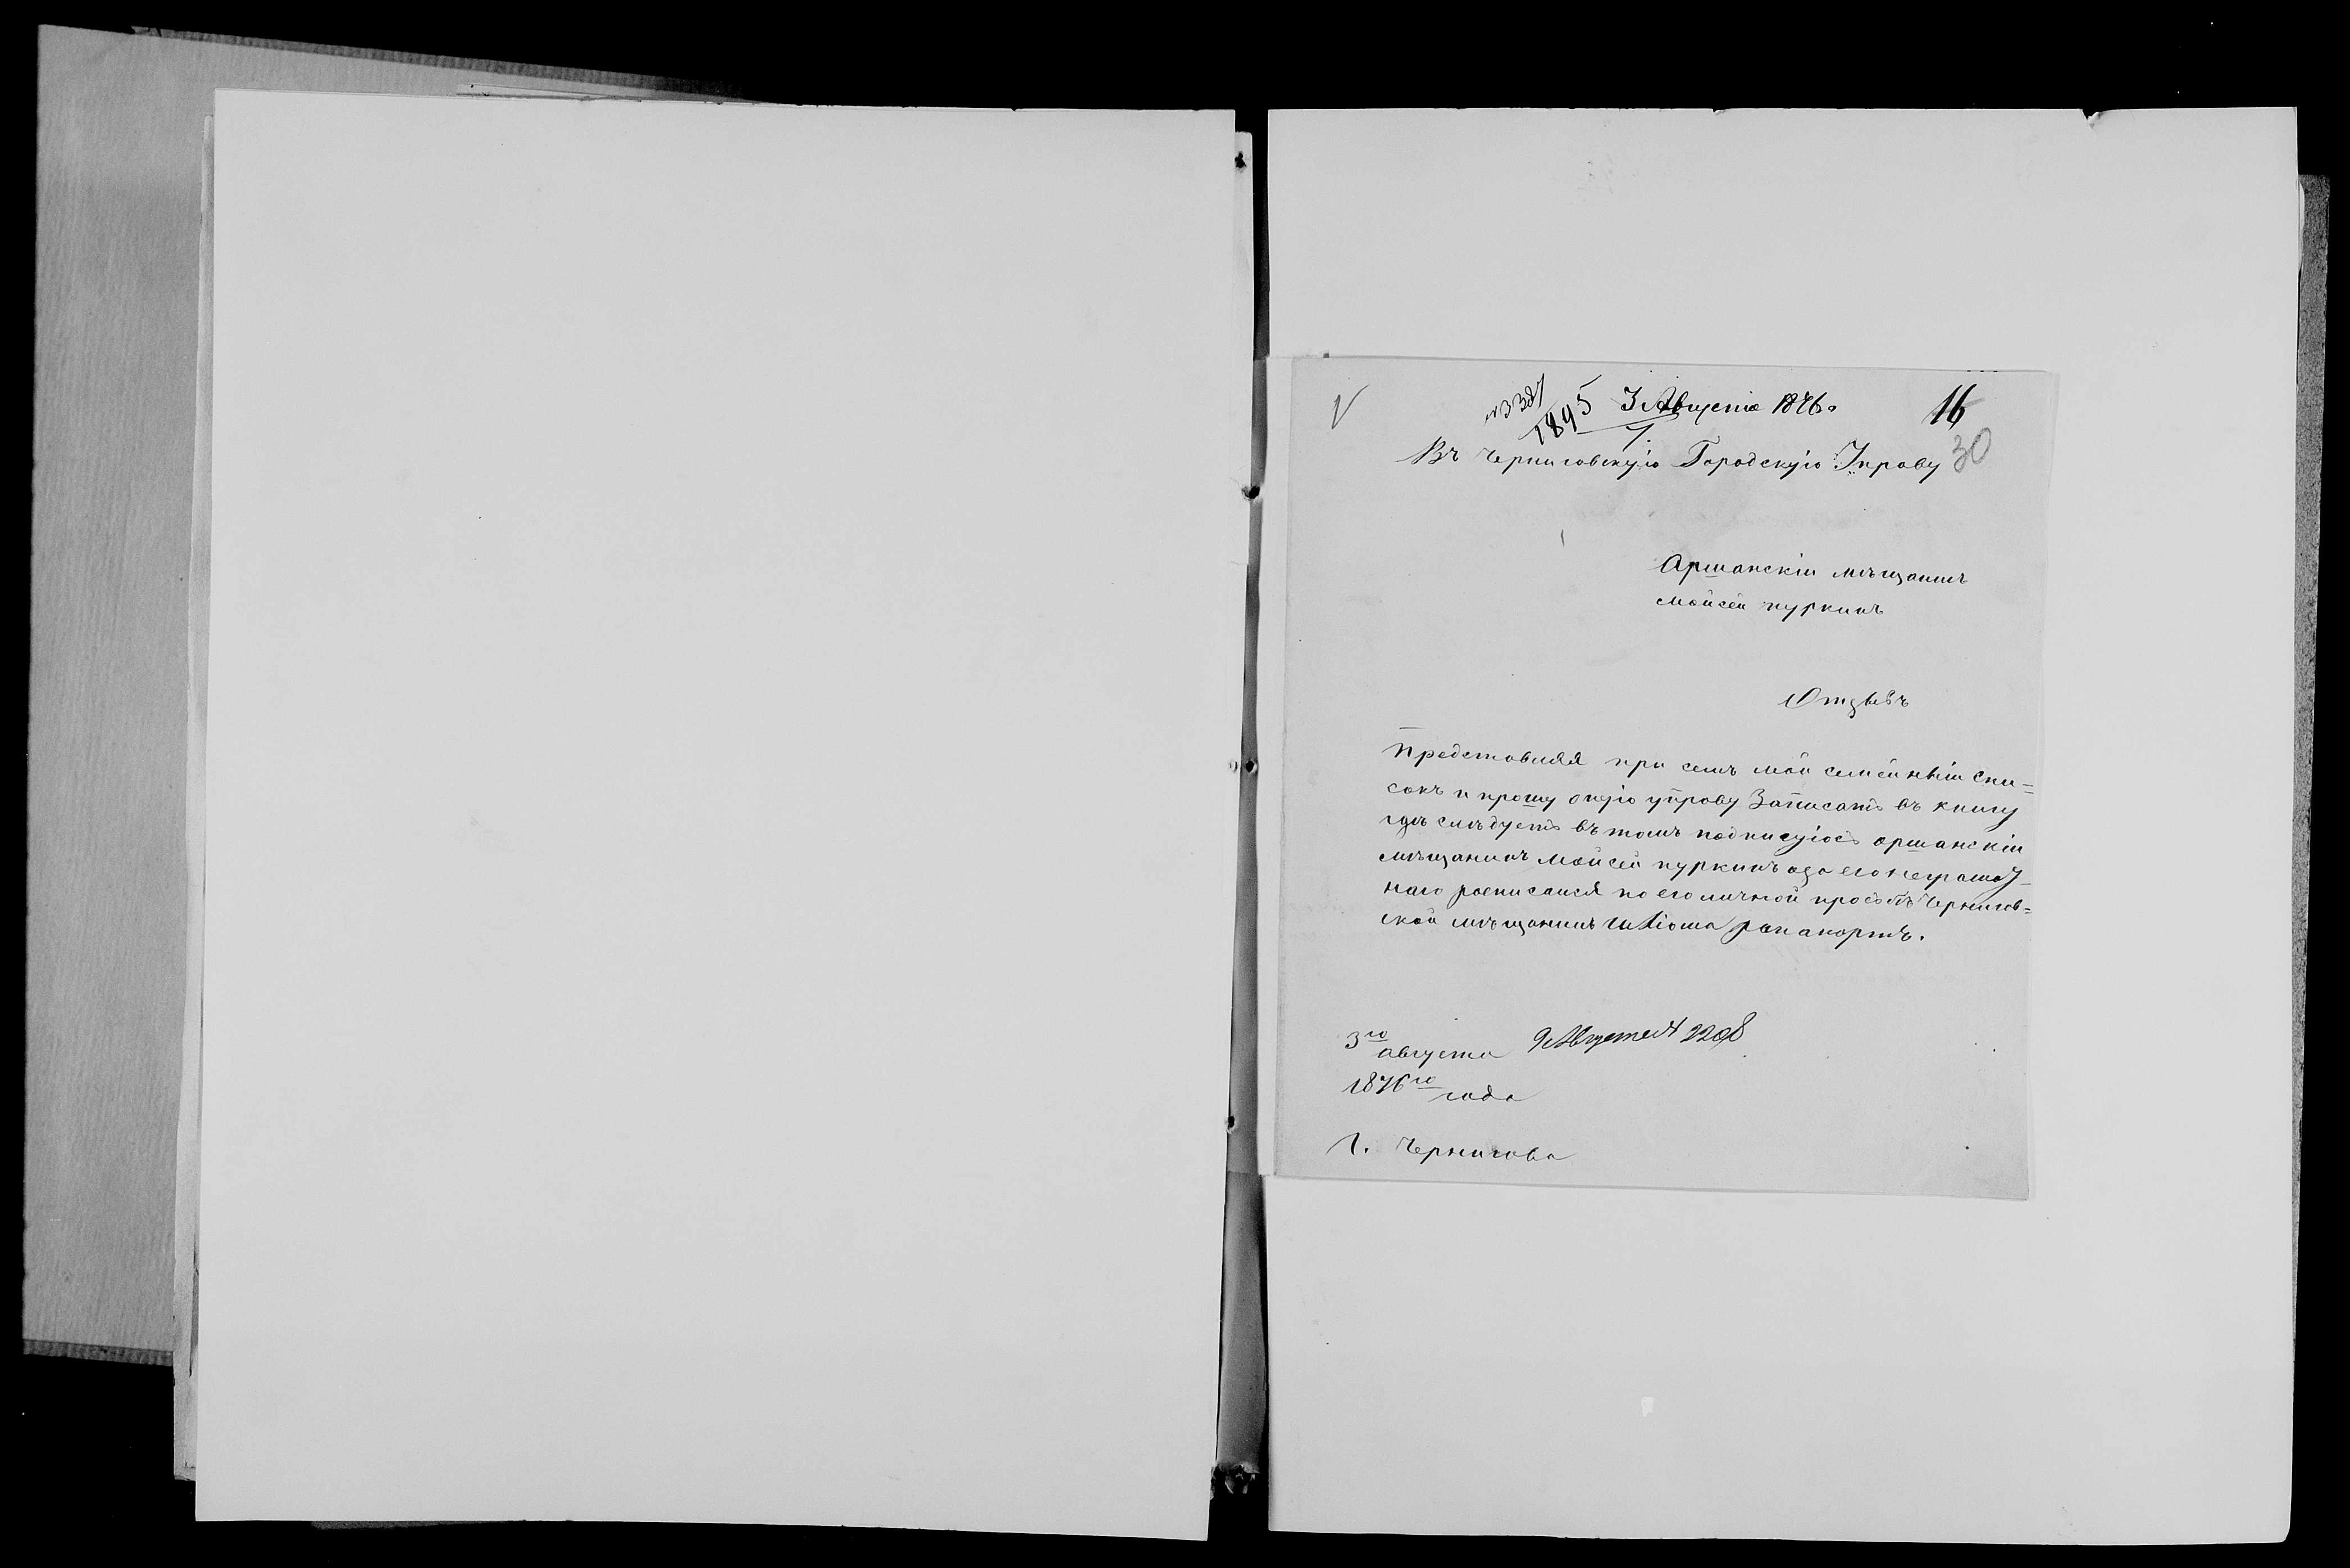 1895 3 Августа 1876 г 16
Въ черниговскую Городскую Управу 30
Аршанскіи мѣщанинъ
Мойсей пуркинъ
Отзывъ
Предстовляя при семъ мой семейныіи спи=
сокъ и прошу оную упрову Записатъ въ книгу
гдѣ слѣдуетъ въ томъ подписуюсъ оршанскіи
мѣщанинъ Мойсей пуркинъ аза его неграмот
наго росписался по его личной просъбѣ Чернигов=
ской мѣщанинъ рапапортъ.
3го августа 9 Августа № 2208
1876го года
Г. Чернигова